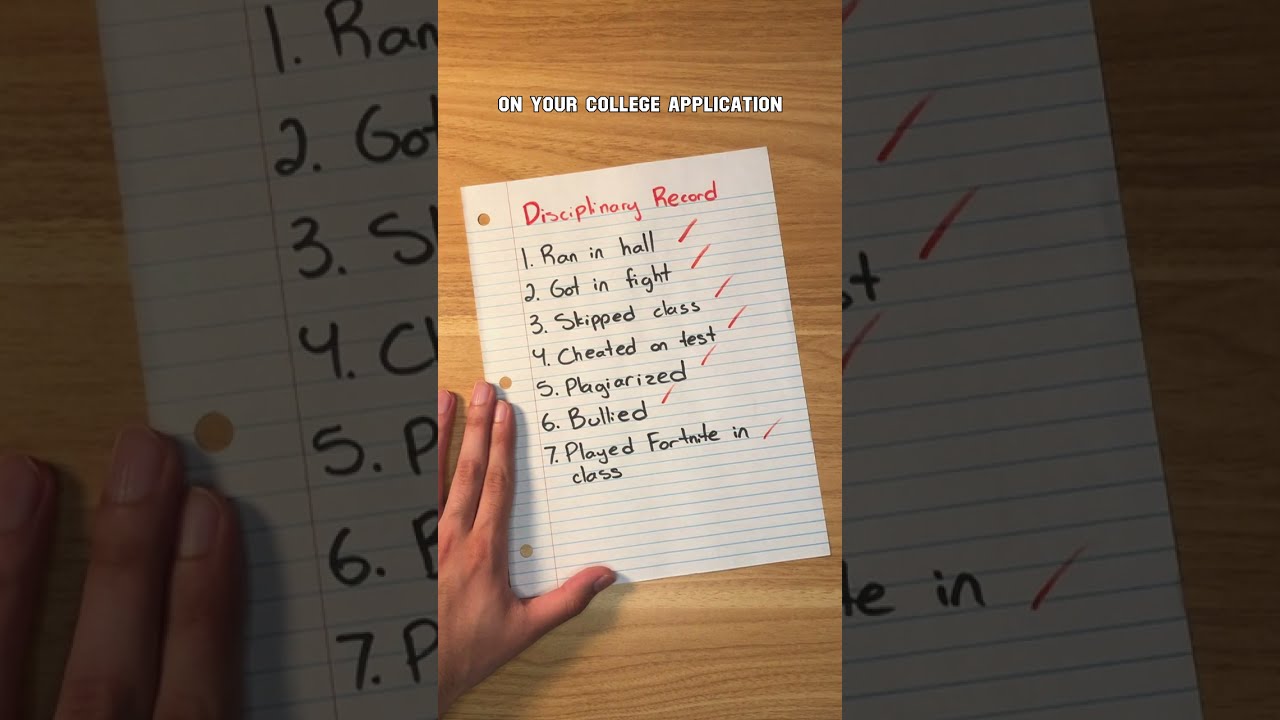 ON YOUR COLLEGE APPLICATION
Disciplinary Record
1. Ran in hall
2. Got in fight
3. Skipped class
4. Cheated on test
5. Plagiarized
6. Bullied
7. Played Fortnite in
class